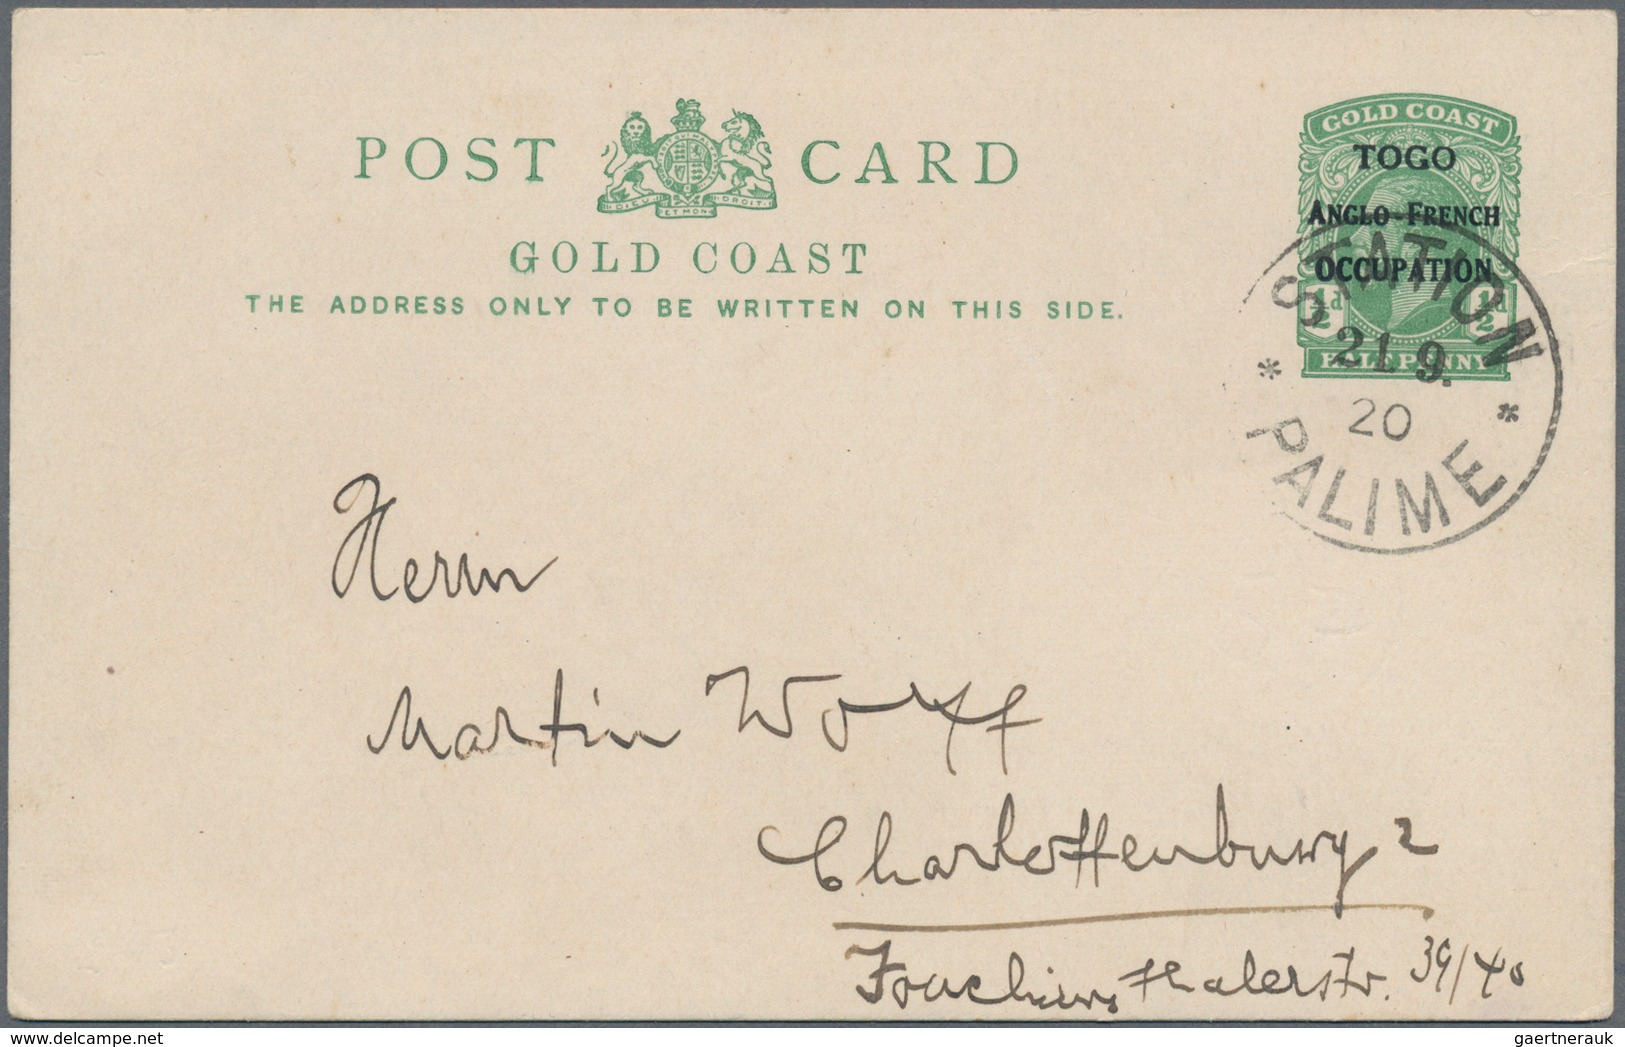 POST CARD
DIEU ET MON DROIT
GOLD COAST
THE ADDRESS ONLY TO BE WRITTEN ON THIS SIDE.
GOLD COAST
TOGO
ANGLO-FRENCH
OCCUPATION
½d ½d
HALFPENNY
STATION
21 9.
20
* PALIME *
Herrn
Martin Wolff
Charlottenburg 2
Joachimsthalerstr. 39/40
delcampe.net
gaertnerauk